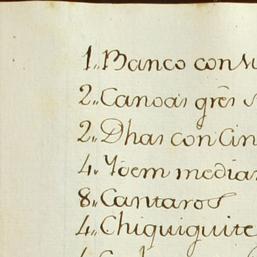 1,, Banco con su
2,, Canoas grẽs
2,, Dhas con cin
4,, Yoem media
8,, Cantaros
4,, Chiquiguite